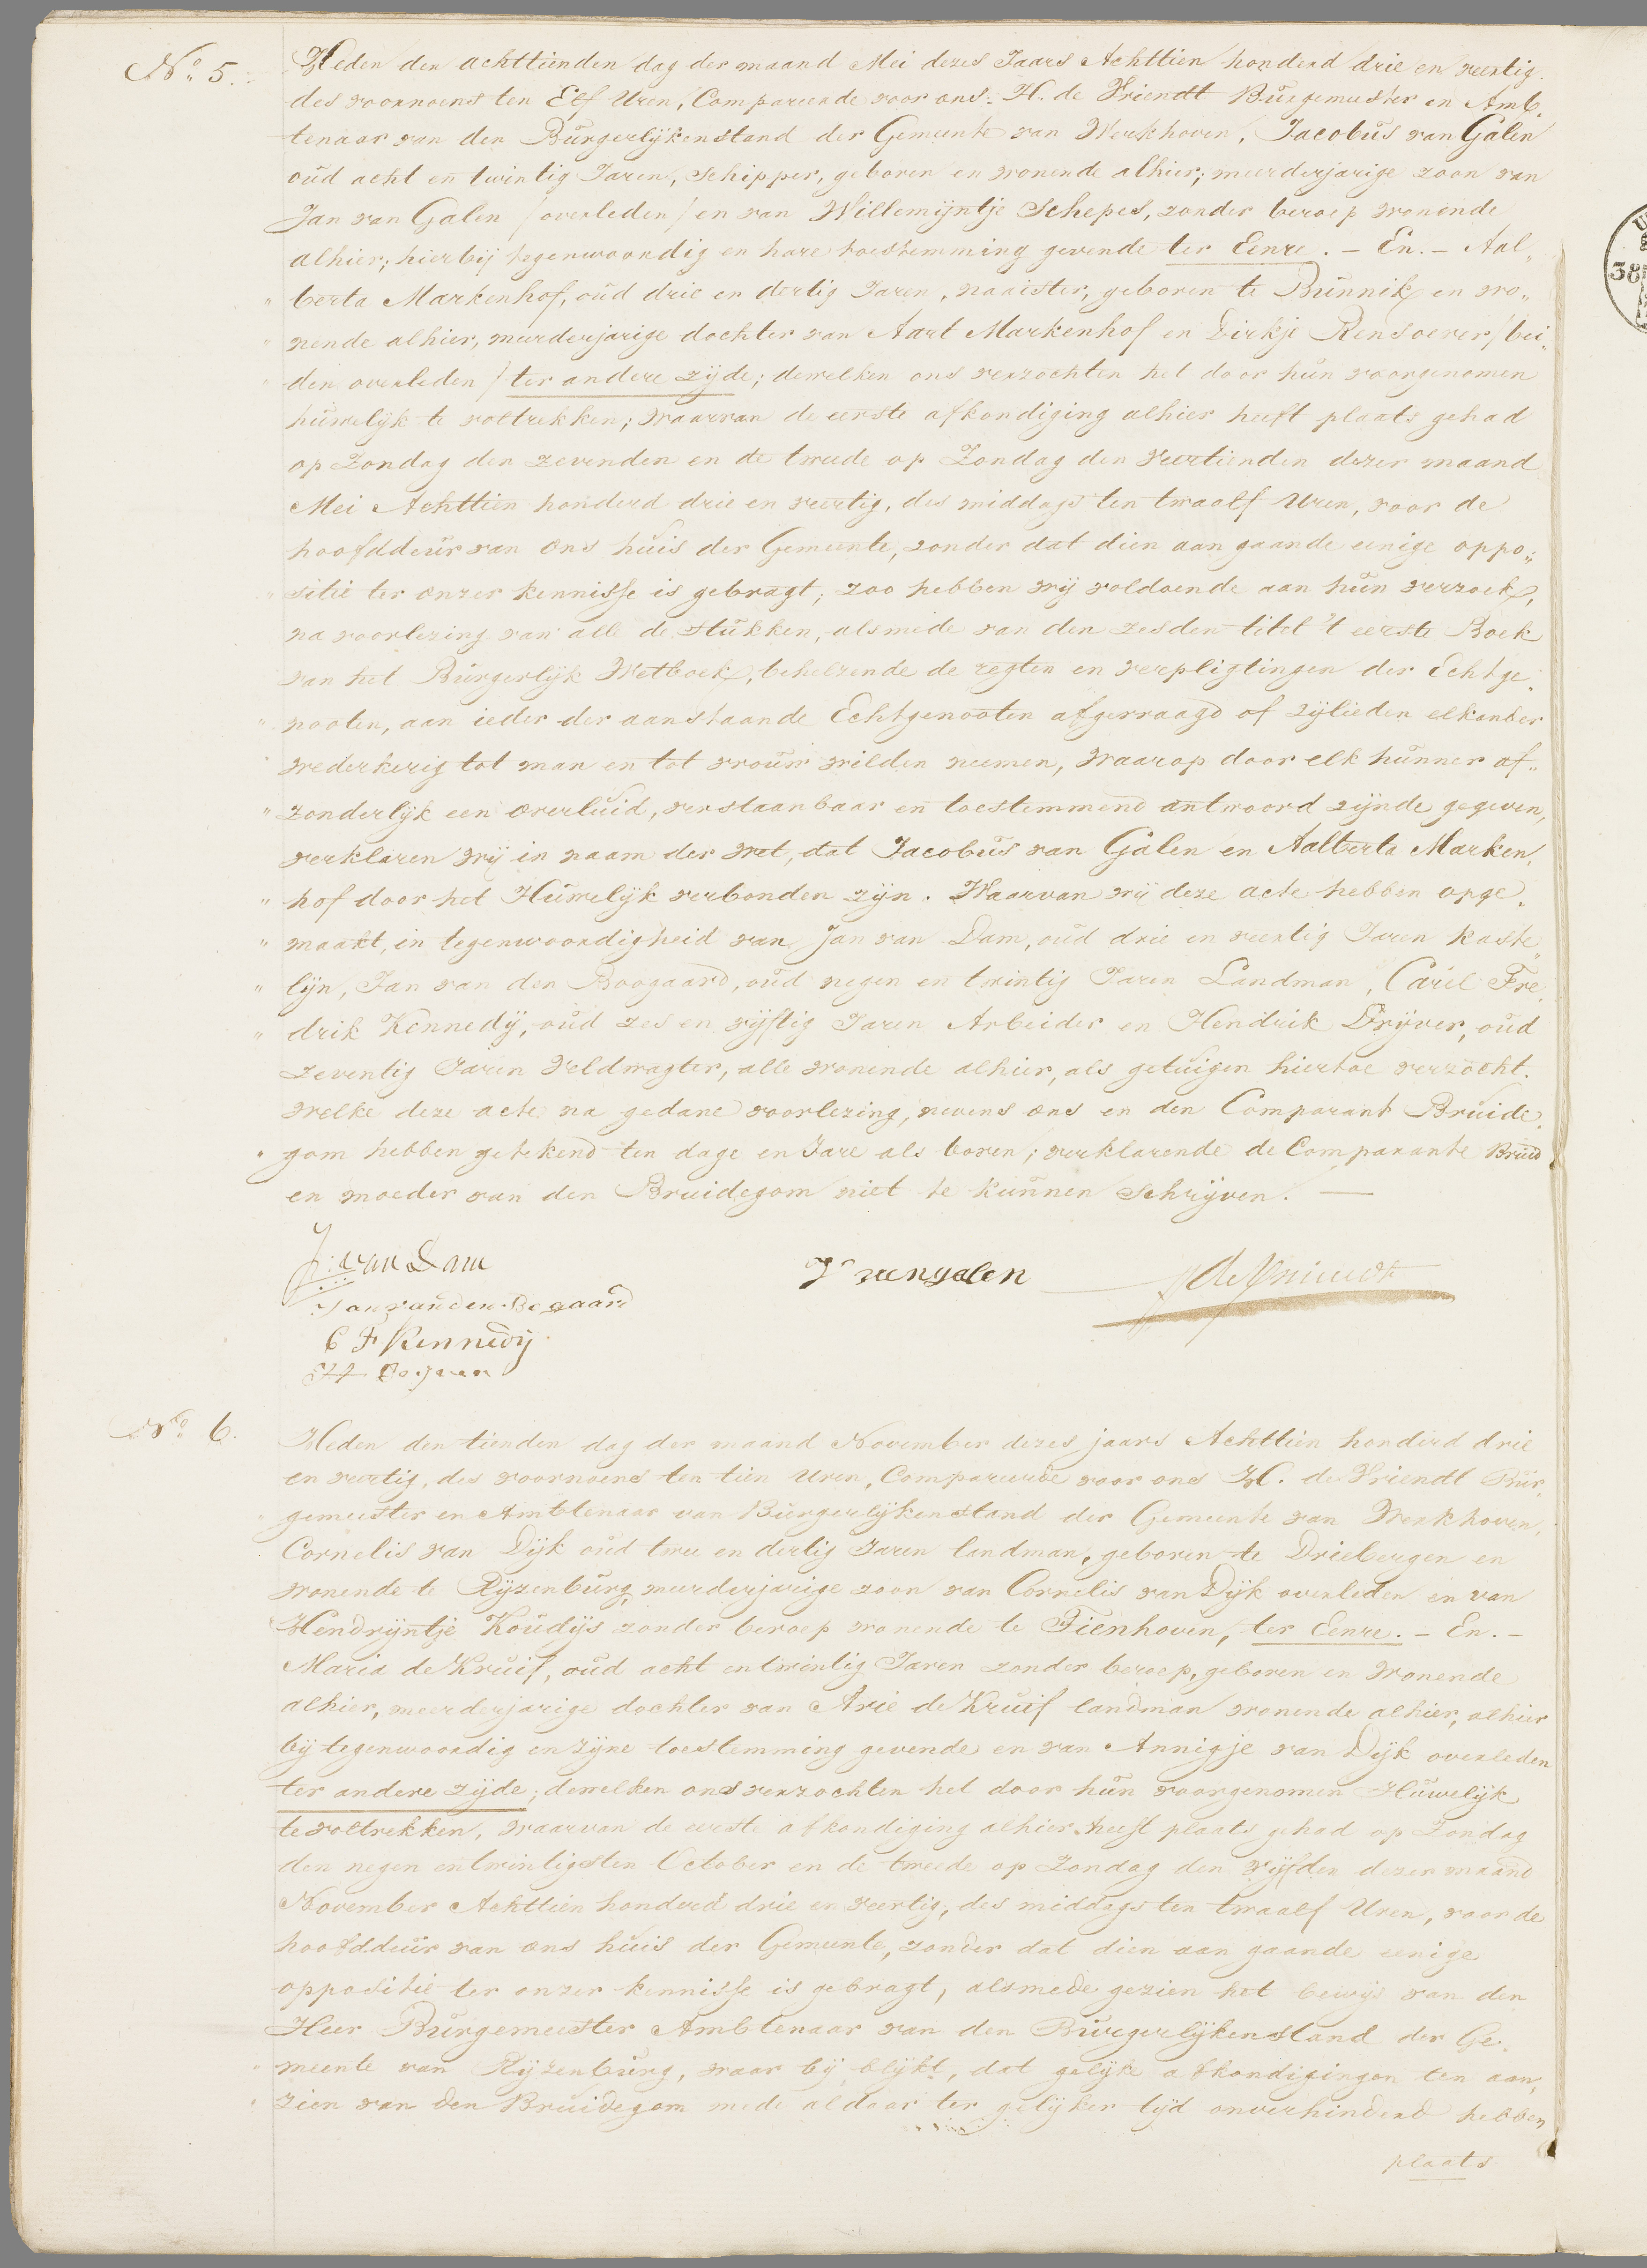 No. 5.
Heden den achttienden dag der maand Mei dezes Jaars Achttien honderd drie en veertig
des voornoens ten Elf Uren, Compareerde voor ons: H. de Vriendt Burgemeester en Amb,,
tenaar van den Burgerlijkenstand der Gemeente van Werkhoven, Jacobus van Galen
oud acht en twintig Jaren, Schipper, geboren en wonende alhier; meerderjarige zoon van
Jan van Galen /overleden/ en van Willemijntje Schepes, zonder beroep wonende
alhier; hierbij tegenwoordig en hare toestemming gevende ter Eenre. – En. – Aal,,
,, berta Markenhof, oud drie en dertig Jaren, naaister, geboren te Bunnik en wo,,
,, nende alhier, meerderjarige dochter van Aart Markenhof en Dirkje Rensoever /bei,,
,, den overleden / ter andere zijde; dewelken ons verzochten het door hun voorgenomen
huwelijk te voltrekken; waarvan de eerste afkondiging alhier heeft plaats gehad
op Zondag den zevenden en de tweede op Zondag den veertienden dezer maand
Mei Achttien honderd drie en veertig, des middags ten twaalf Uren, voor de
hoofddeur van ons huis der Gemeente, zonder dat dien aan gaande eenige oppo,,
,, sitie ter onzer kennisse is gebragt; zoo hebben wij voldoende aan hun verzoek,
na voorlezing van alle de stukken, alsmede van den zesden titel 't eerste Boek
van het Burgerlijk Wetboek, behelzende de regten en verpligtingen der Echtge,,
,, nooten, aan ieder der aanstaande Echtgenooten afgevraagd of zijlieden elkander
wederkerig tot man en tot vrouw wilden neemen, waarop door elk hunner af,,
,, zonderlijk een overluid, verstaanbaar en toestemmend antwoord zijnde gegeven,
verklaren wij in naam der wet, dat Jacobus van Galen en Aalberta Marken,,
,, hof door het Huwelijk verbonden zijn. Waarvan wij deze acte hebben opge,,
,, maakt, in tegenwoordigheid van Jan van Dam, oud drie en veertig Jaren kaste,,
,, lijn, Jan van den Boogaard, oud negen en twintig Jaren Landman, Carel Fre,,
,, drik Kennedij, oud zes en vijftig Jaren Arbeider en Hendrik Drijver, oud
zeventig Jaren veldwagter, alle wonende alhier, als getuigen hiertoe verzocht.
welke deze acte na gedane voorlezing, nevens ons en den Comparant Bruide,,
,, gom hebben getekend ten dage en Jare als boven; verklarende de Comparante Bruid
en moeder van den Bruidegom niet te kunnen Schrijven. —
J. van Dam
J van galen
H de Vriendt
Jan van den Bogaard
C F Kennedij
H Drijver
No. 6.
Heden den tienden dag der maand November dezes jaars Achttien honderd drie
en veertig, des voornoens ten tien Uren, Compareerde voor ons H. de Vriendt Bur,,
gemeester en Amblenaar van Burgerlijkenstand der Gemeente van Werkhoven,
Cornelis van Dijk oud twee en dertig Jaren landman, geboren te Driebergen en
wonende te Rijzenburg, meerderjarige zoon van Cornelis van Dijk overleden en van
Hendrijntje Koudijs zonder beroep wonende te Tienhoven, ter Eenre. – En. –
Maria de Kruif, oud acht en twintig Jaren zonder beroep, geboren en wonende
alhier, meerderjarige dochter van Arie de Kruif landman wonende alhier, alhier
bij tegenwoordig en zijne toestemming gevende en van Annigje van Dijk overleden
ter andere zijde; dewelken ons verzochten het door hun voorgenomen Huwelijk
te voltrekken, waarvan de eerste afkondiging alhier heeft plaats gehad op Zondag
den negen entwintigsten October en de tweede op Zondag den vijfden dezer maand
November Achttien honderd drie en veertig, des middags ten twaalf Uren, voor de
hoofddeur van ons huis der Gemeente, zonder dat dien aan gaande eenige
oppositie ter onzer kennisse is gebragt, alsmede gezien het bewijs van den
Heer Burgemeester Amblenaar van den Burgerlijkenstand der Ge,,
,, meente van Rijzenburg, waar bij blijkt, dat gelijke afkondigingen ten aan,,
,, zien van den Bruidegom mede aldaar ter gelijker tijd onverhinderd hebben
plaats